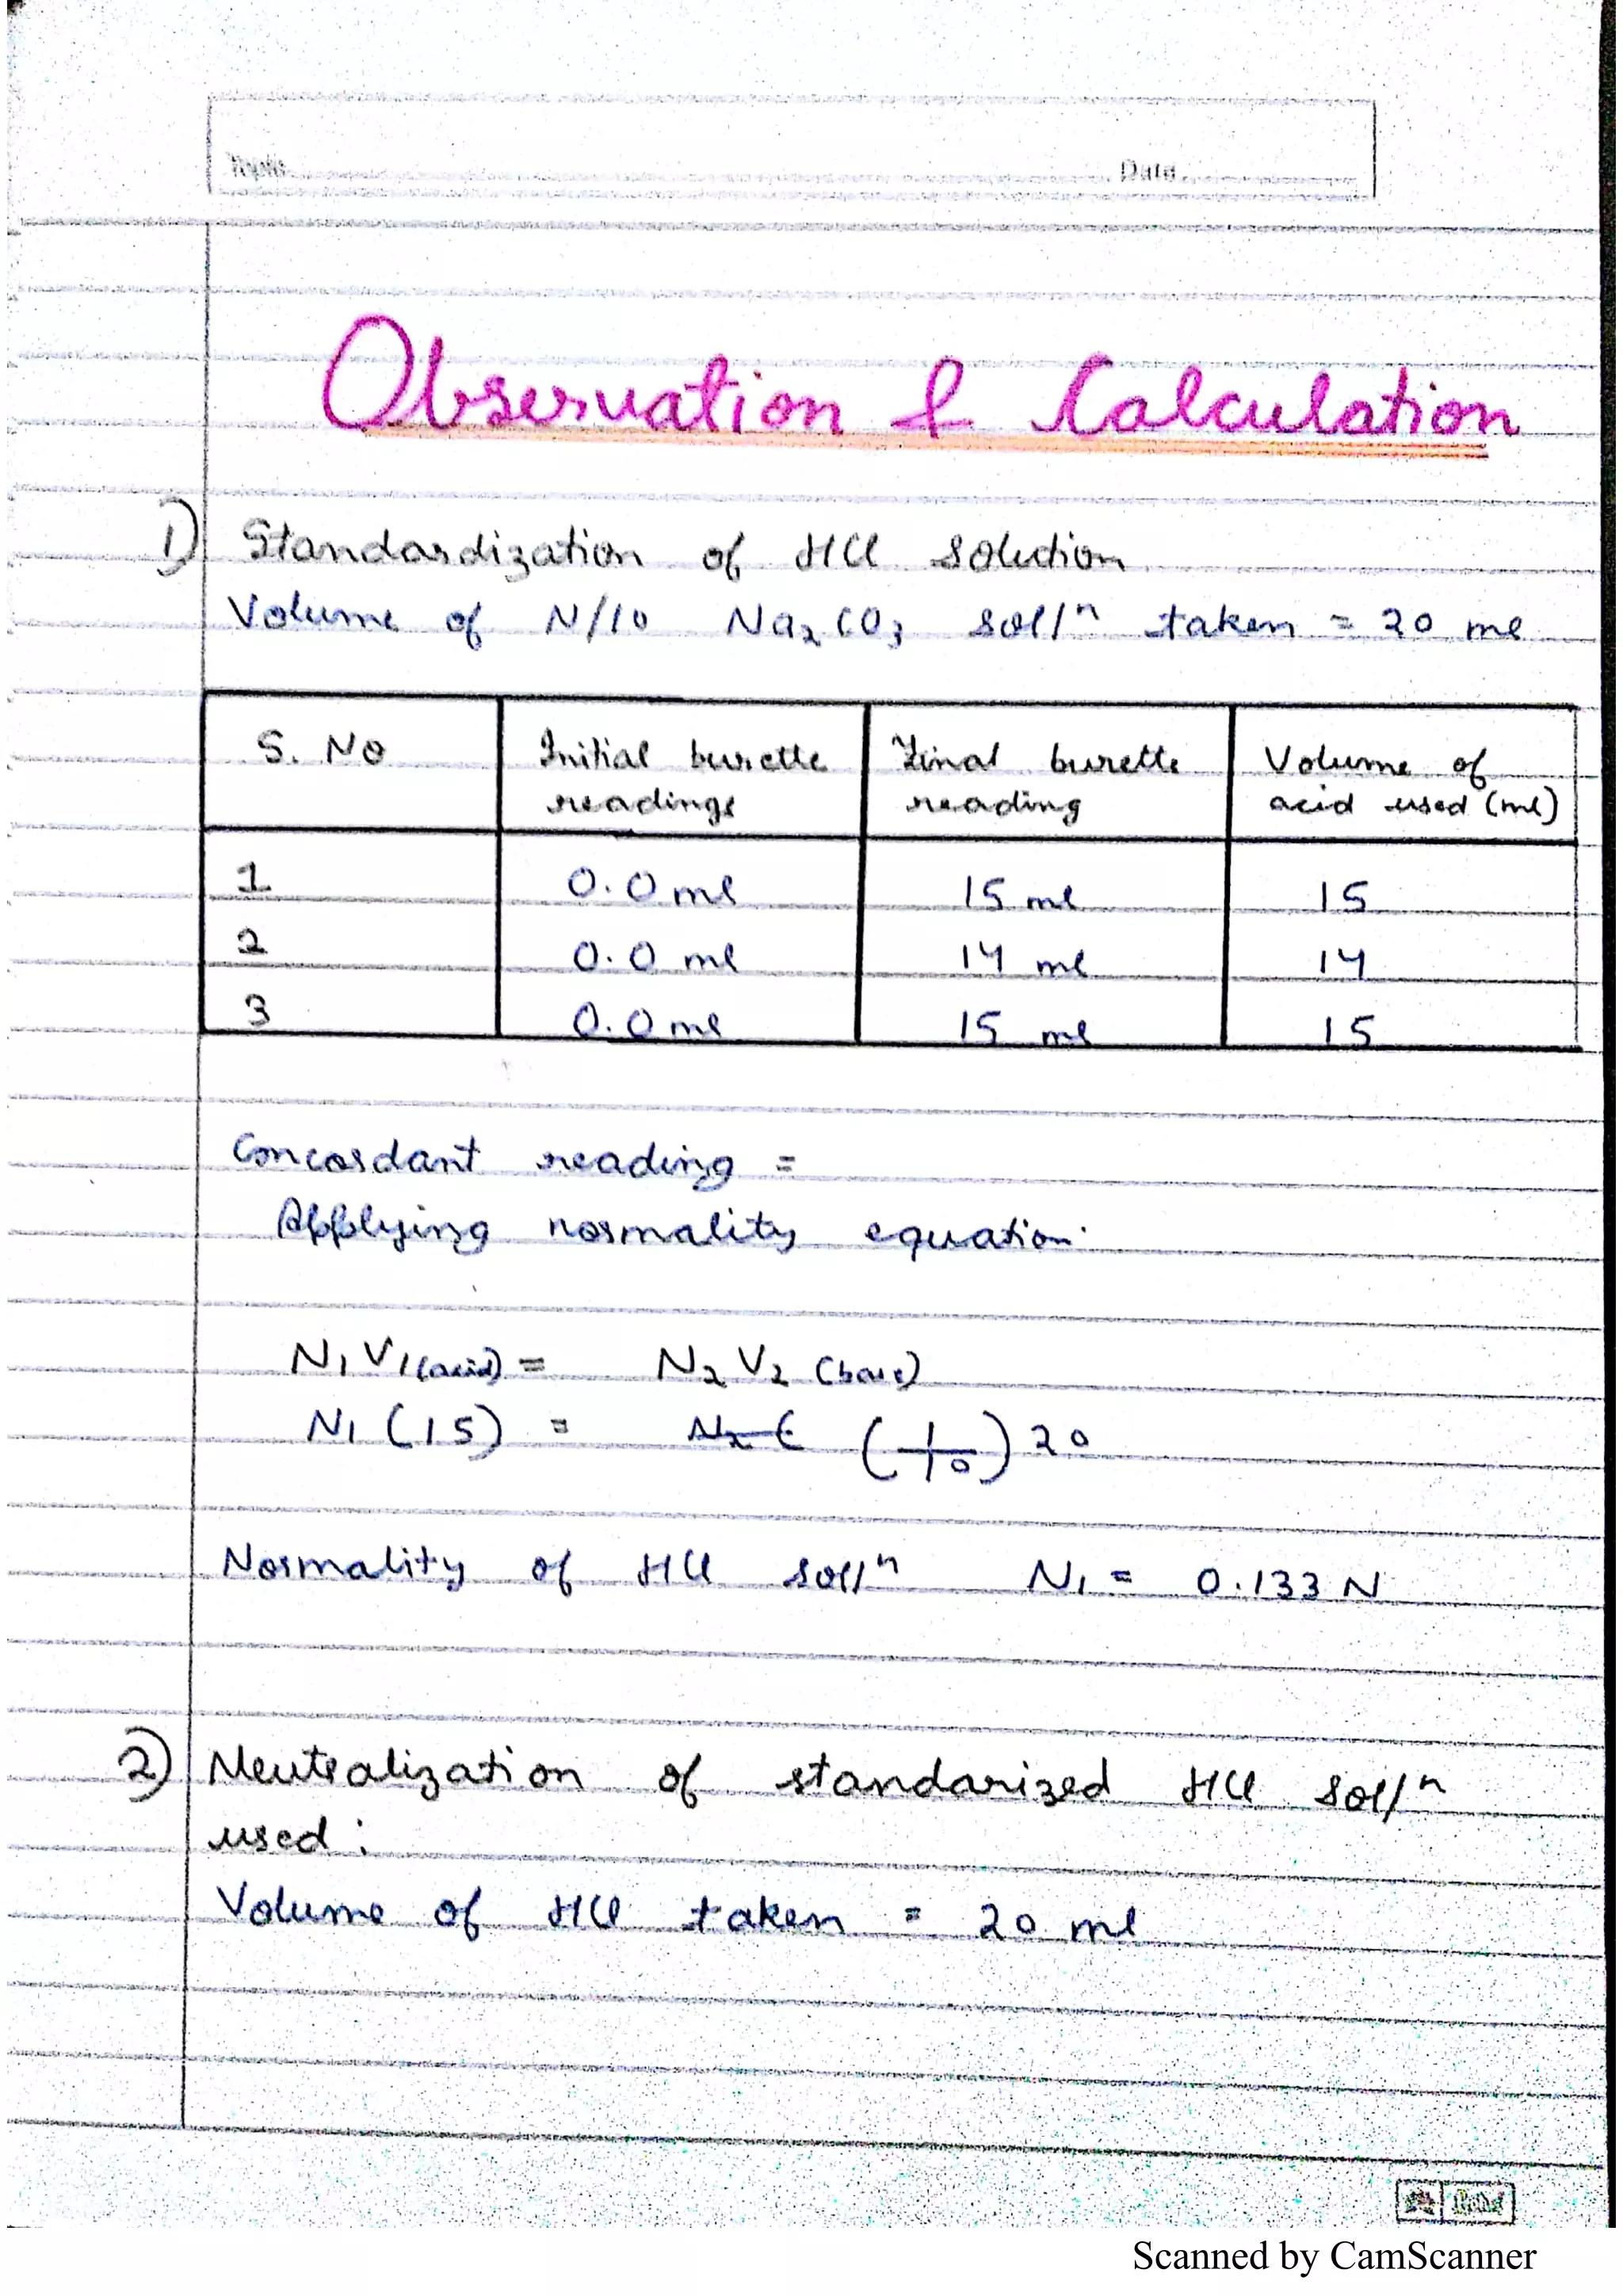 Date
Observation & Calculation
1) Standardization of HCl solution
Volume of N/10 Na₂CO₃ sol/ⁿ taken = 20 ml
S. No Initial burette readings Final burette reading Volume of acid used (ml)
1 0.0 ml 15 ml 15
2 0.0 ml 14 ml 14
3 0.0 ml 15 ml 15
Concordant reading =
Applying normality equation.
N₁V₁(acid) = N₂V₂ (base)
N₁ (15) = N₂ ( (1/10) 20
Normality of HCl sol/ⁿ N₁ = 0.133 N
2) Neutralization of standarized HCl sol/ⁿ
used :
Volume of HCl taken = 20 ml
Scanned by CamScanner